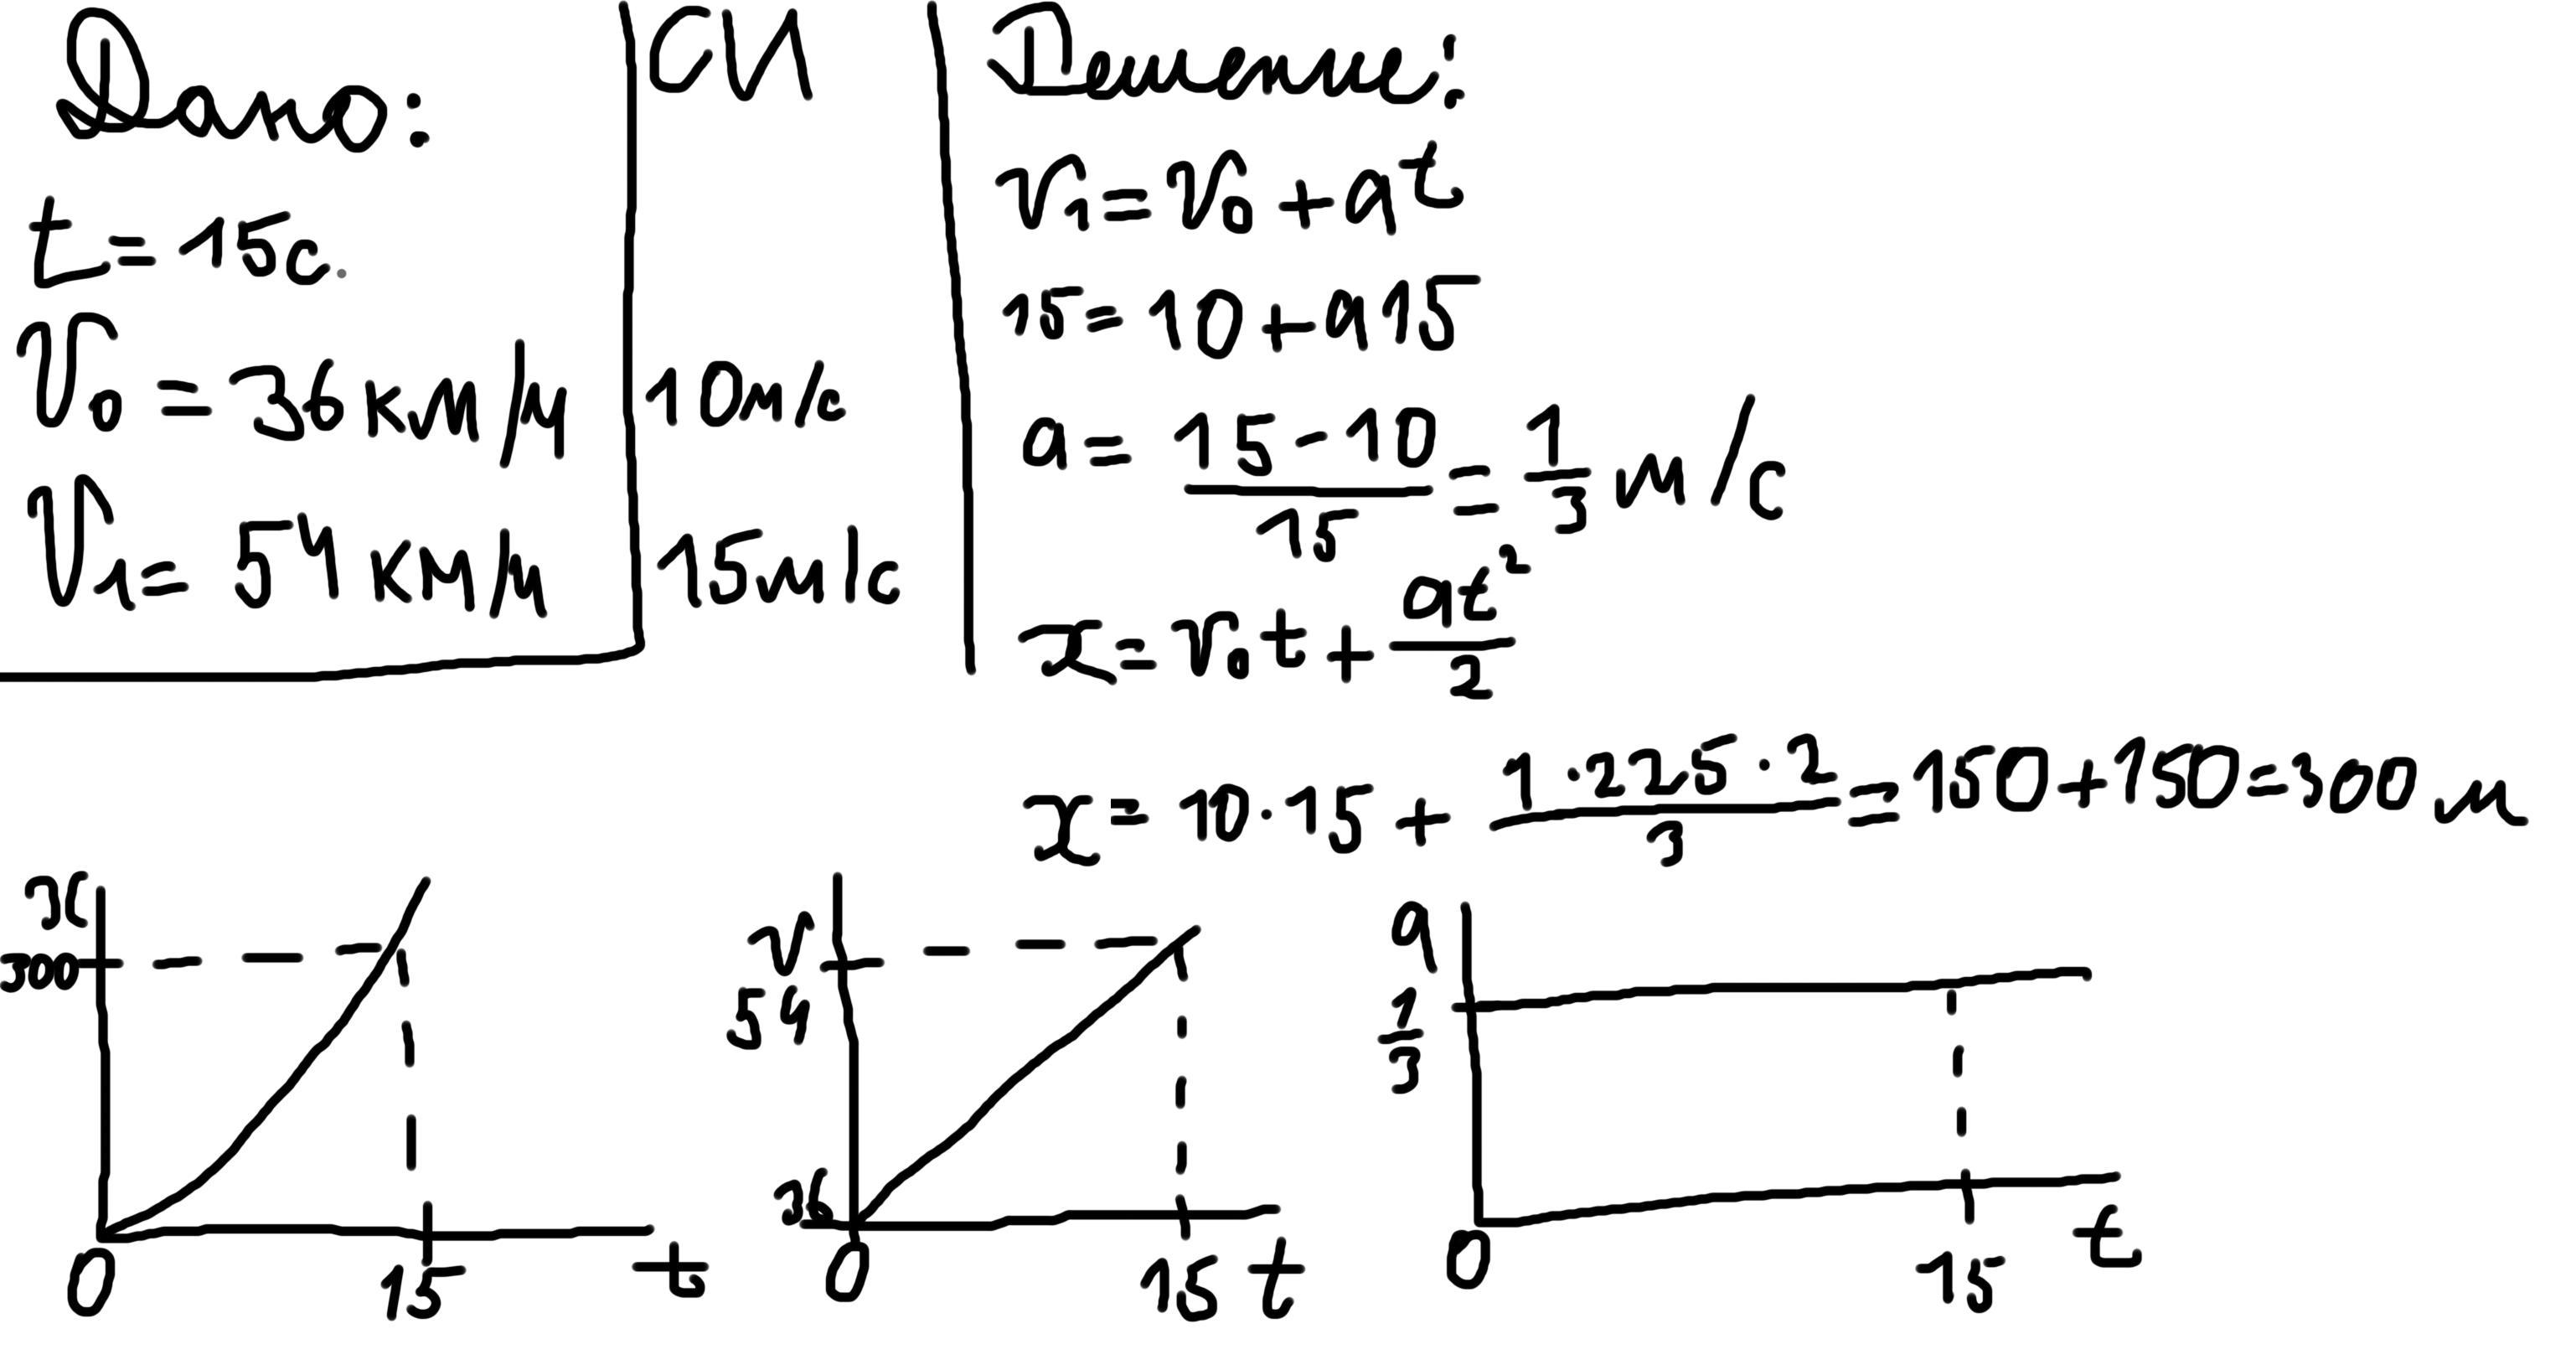 Дано:
t = 15с.
V₀ = 36 км/ч
V₁ = 54 км/ч
СИ
10м/с
15м/с
Решение:
V₁ = V₀ + at
15 = 10 + a15
a = (15 - 10)/15 = 1/3 м/с
x = V₀t + at²/2
x = 10·15 + (1·225·2)/3 = 150 + 150 = 300 м
x
300
0
15
t
V
54
36
0
15
t
a
1/3
0
15
t